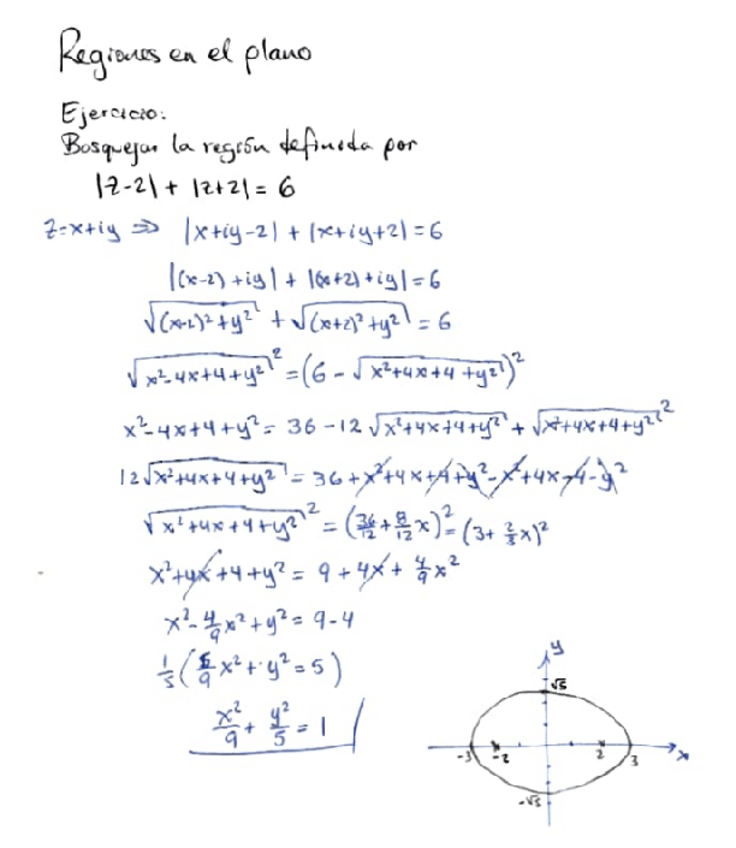 Regiones en el plano
Ejercicio:
Bosquejar la región definida por
|z-2| + |z+2| = 6
z=x+iy ⇒ |x+iy-2| + |x+iy+2| = 6
|(x-2)+iy| + |(x+2)+iy| = 6
√((x-2)²+y²) + √((x+2)²+y²) = 6
√(x²-4x+4+y²)² = (6-√(x²+4x+4+y²))²
x²-4x+4+y² = 36-12√(x²+4x+4+y²) + √(x²+4x+4+y²)²
12√(x²+4x+4+y²) = 36+x²+4x+4+y²-x²+4x-4-y²
√(x²+4x+4+y²)² = (36/12+8/12 x)² = (3+2/3 x)²
x²+4x+4+y² = 9+4x+4/9 x²
x²-4/9 x²+y² = 9-4
1/5 (5/9 x²+y² = 5)
x²/9 + y²/5 = 1
y
√5
-3 -2 2 3 x
-√5